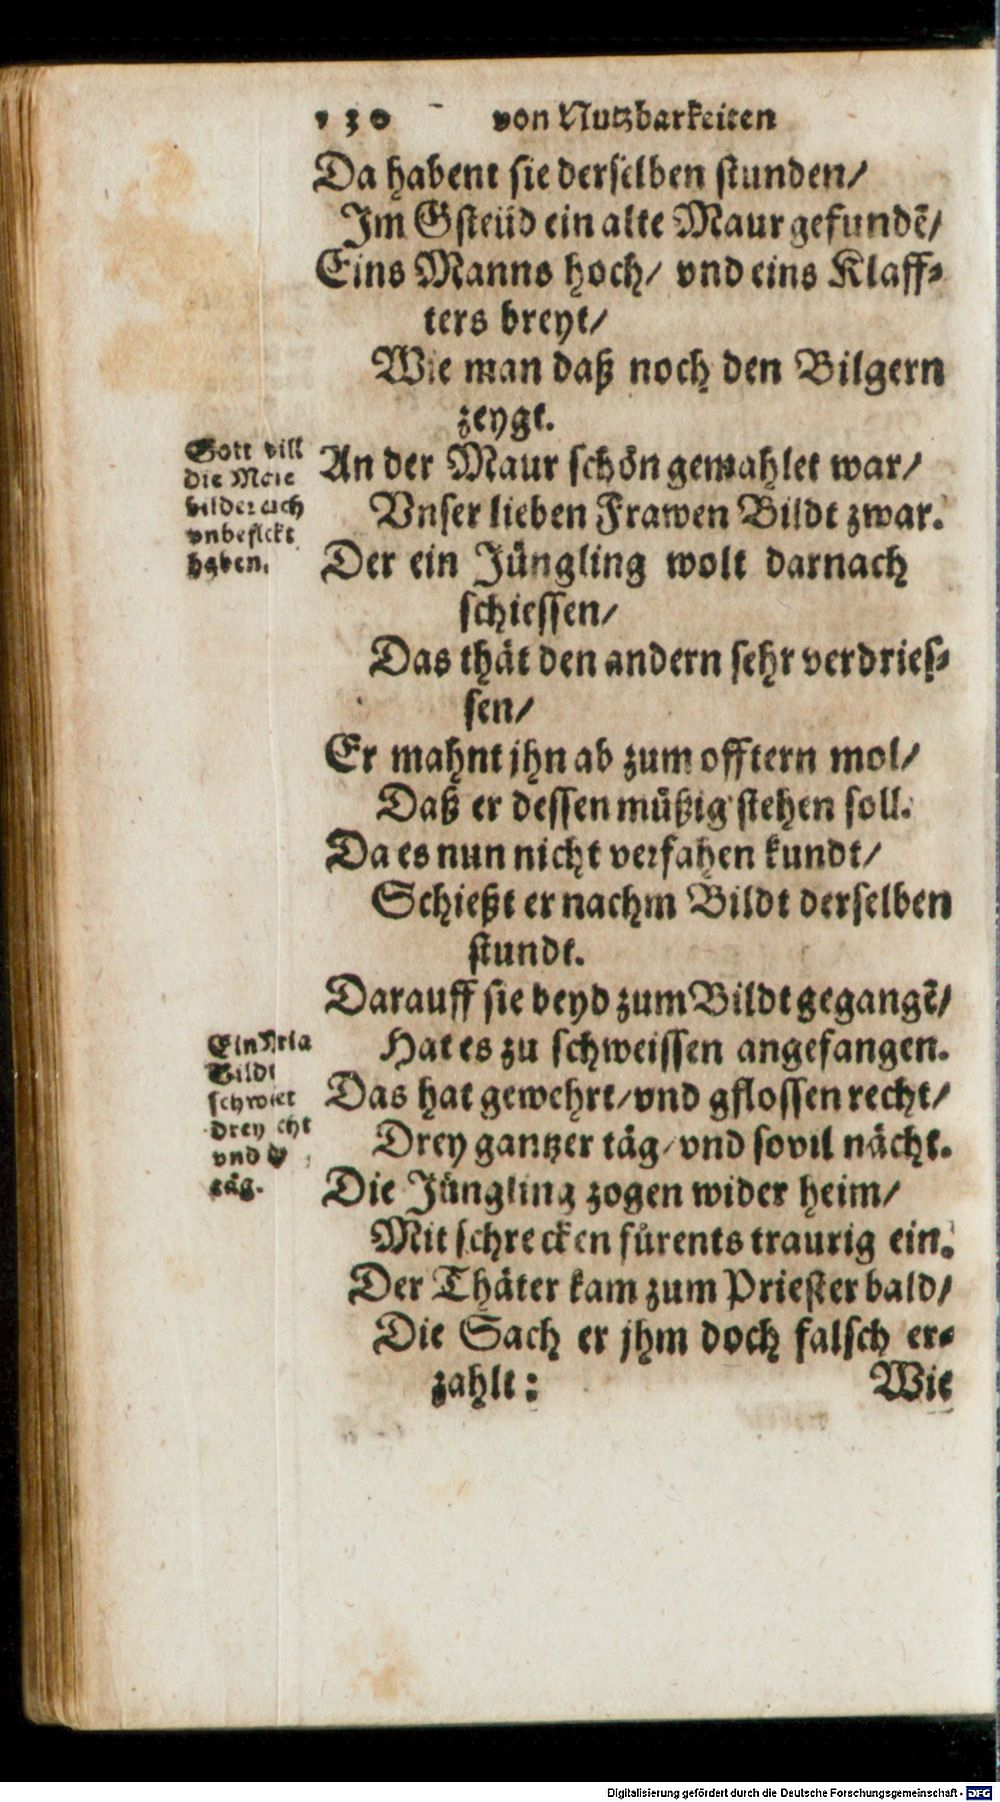 130 von Nutzbarkeiten
Da habent sie derselben stunden/
Im Gsteüd ein alte Maur gefundẽ/
Eins Manns hoch/ vnd eins Klaff⸗
ters breyt/
Wie man daß noch den Bilgern
zeygt.
An der Maur schön gemahlet war/
Vnser lieben Frawen Bildt zwar.
Der ein Jüngling wolt darnach
schiessen/
Das thät den andern sehr verdries⸗
sen/
Er mahnt jhn ab zum offtern mol/
Daß er dessen müßig stehen soll.
Da es nun nicht verfahen kundt/
Schießt er nachm Bildt derselben
stundt.
Darauff sie beyd zum Bildt gegangẽ/
Hat es zu schweissen angefangen.
Das hat gewehrt/vnd gflossen recht/
Drey gantzer täg/vnd sovil nächt.
Die Jüngling zogen wider heim/
Mit schrecken fürents traurig ein.
Der Thäter kam zum Priester bald/
Die Sach er jhm doch falsch er⸗
zahlt: Wie
Gott vill
die
bilder auch
vnbeflckt
haben.
Ein
Bildt
drey
vnd
täg.
Digitalisierung gefördert durch die Deutsche Forschungsgemeinschaft - DFG